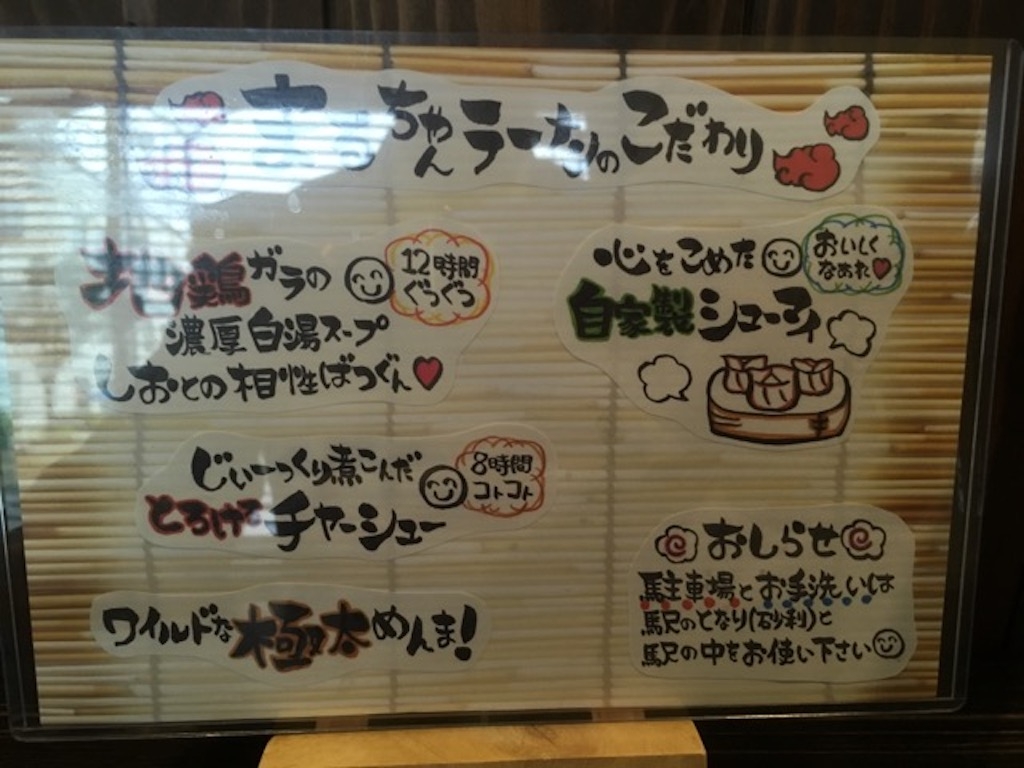 ちゃんラーメンのこだわり
地鶏ガラの
12時間
ぐつぐつ
濃厚白湯スープ
しおとの相性ばつぐん
心をこめた
おいしく
なあれ
自家製シューマイ
じぃーっくり煮こんだ
8時間
コトコト
とろけるチャーシュー
ワイルドな極太めんま!
おしらせ
駐車場とお手洗いは
駅のとなり(砂利)と
駅の中をお使い下さい